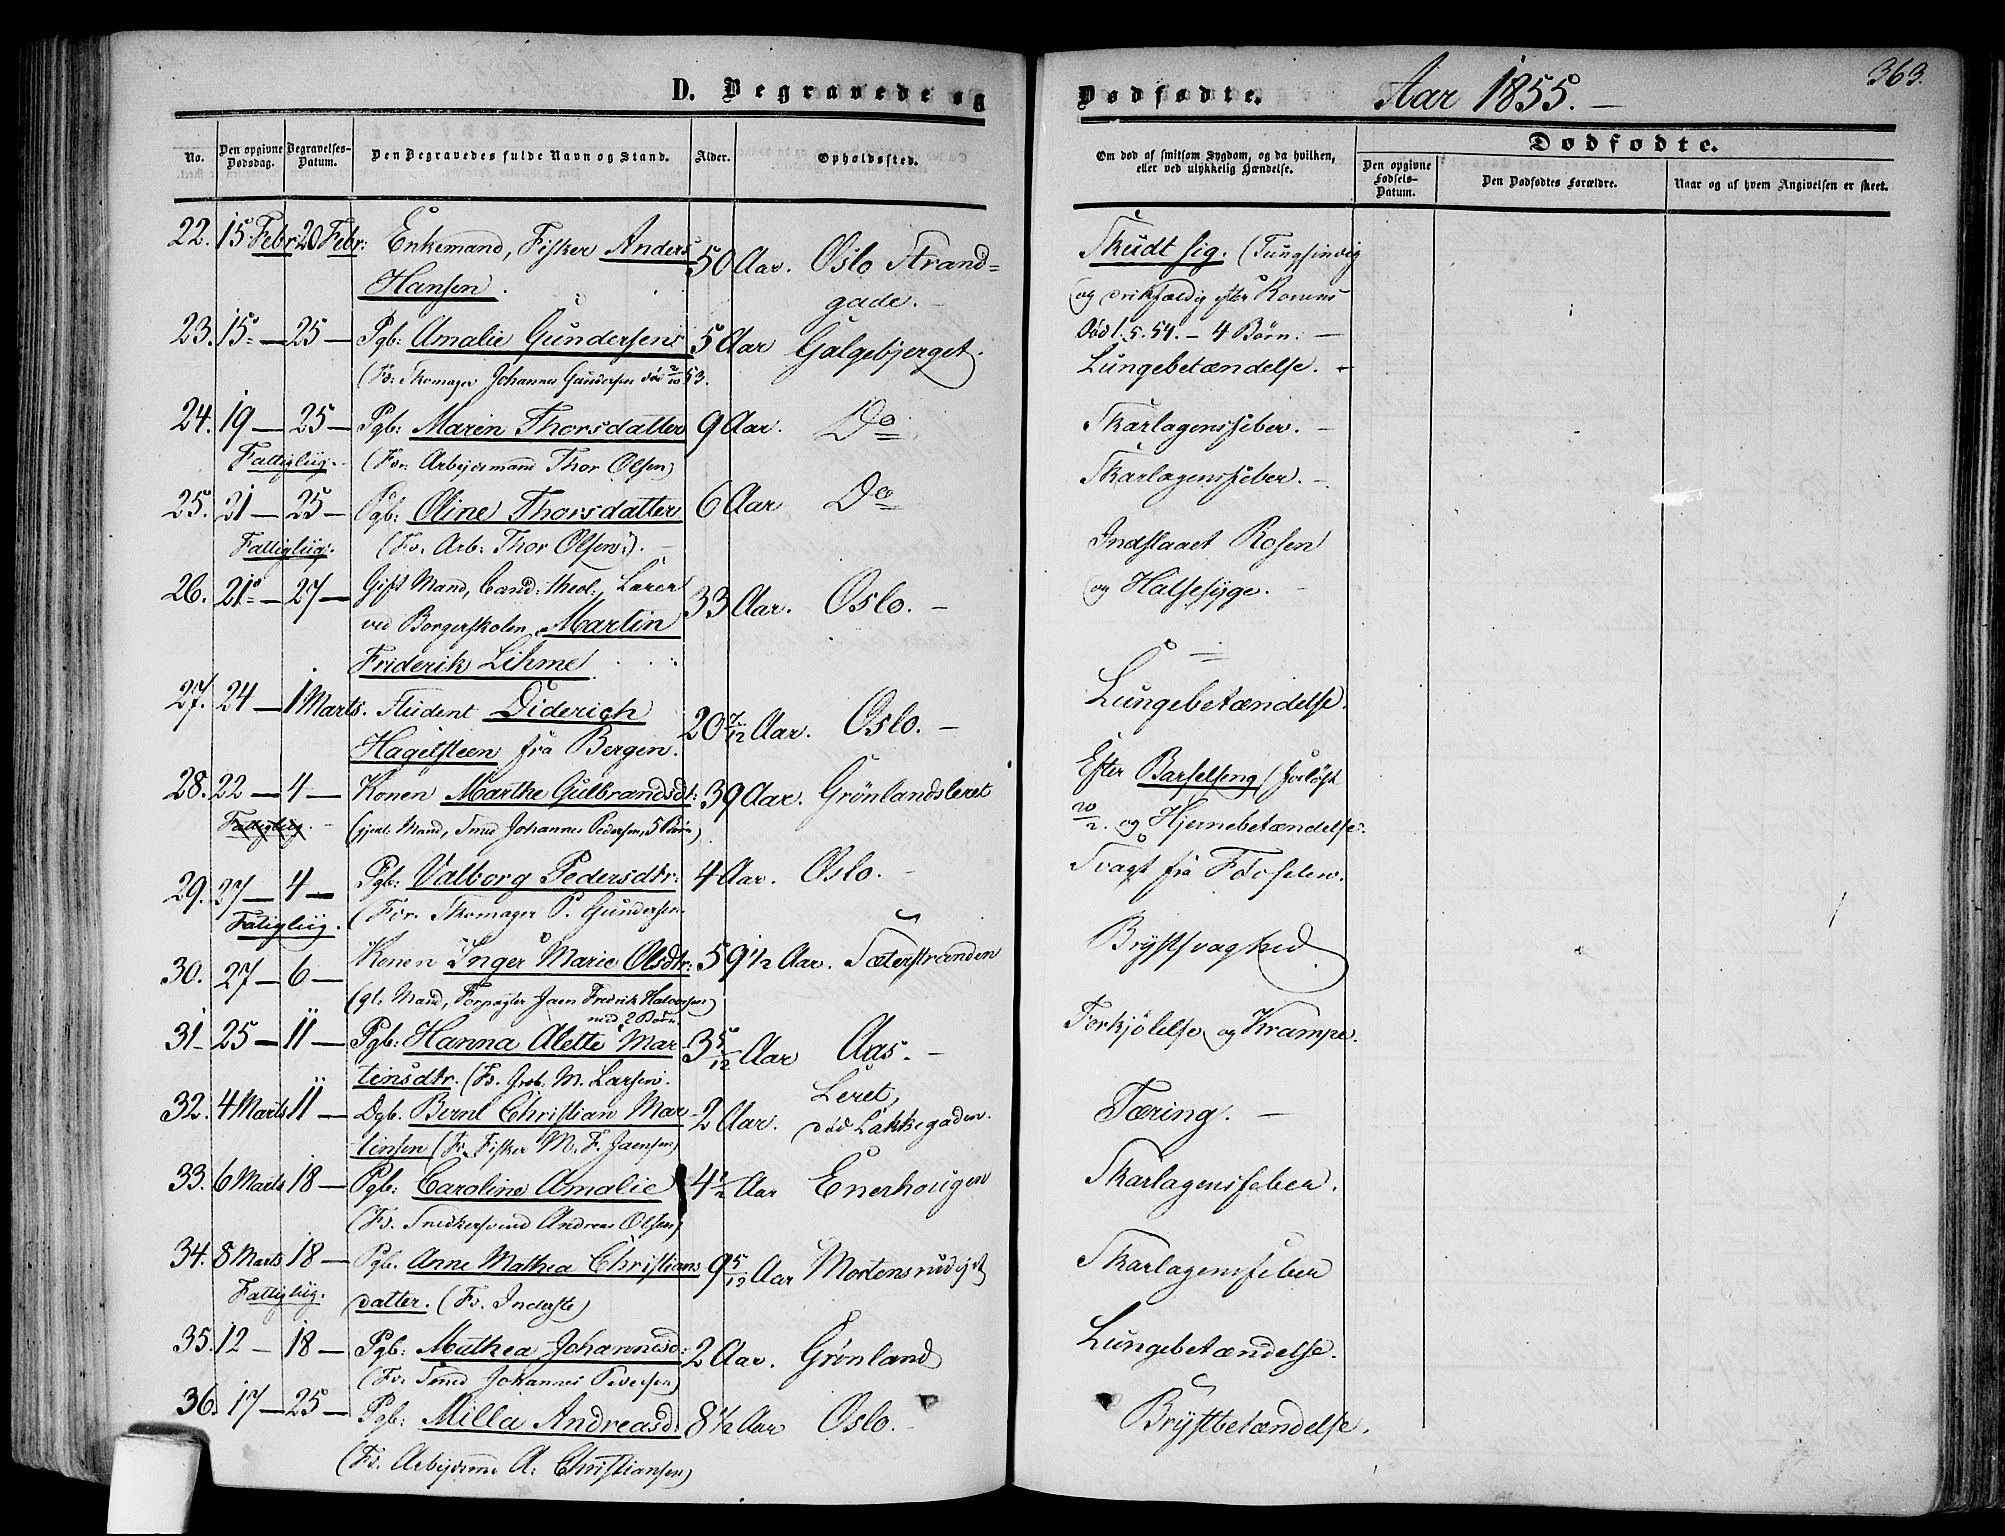 D. Begravede og
Dødfødte. Aar 1855. 363.
No. Den opgivne Dødsdag. Begravelses-Datum. Den Begravedes fulde Navn og Stand. Alder. Opholdssted.
Om død af smitsom Sygdom, og da hvilken, eller ved ulykkelig Hændelse.
Dødfødte.
Den opgivne Fødsels-Datum. Den Dødfødtes Forældre. Naar og af hvem Angivelsen er skeet.
22. 15 Febr 20 Febr: Enkemand, Fisker Anders 50 Aar. Oslo Strand=
Hansen. gade.
23. 15 — 25 — Pgb: Amalie Gundersens 5 Aar Galgebjerget.
(Fr: Skomager Johannes Gundersen død 2/10 53.
24. 19 — 25 — Pgb: Maren Thorsdatter 9 Aar. Do
Fattigliig. (Fr: Arbejdsmand Thor Olsen)
25. 21 — 25 — Pgb: Oline Thorsdatter 6 Aar Do
Fattigliig. (Fr. Arb: Thor Olsen.)
26. 21 — 27 — Gift Mand, Cand: theol:, Lærer 33 Aar. Oslo.
ved Borgerskolen, Martin
Friderik Lihme
27. 24 — 1 Marts. Student Diderich 20 7/12 Aar. Oslo.
Hagelsteen fra Bergen.
28. 22 — 4 — Konen Marthe Gulbrandsdt: 39 Aar. Grönlandsleret
Fattigliig. (gjenl. Mand, Smed Johannes Pedersen, 5 Børn)
29. 27 — 4 — Pgb: Valborg Pedersdtr: 4 Aar. Oslo.
Fatigliig. (For. Skomager P. Gundersen.
30. 27 — 6 — Konen Inger Marie Olsdtr: 59 1/2 Aar. Sæterstranden
(gl. Mand, Forpagter Jaen Fredrik Halvorsen)
med 2 Børn.
31 25 — 11 — Pgb: Hanna Alette Mar- 3 5/12 Aar Aas.
tinsdtr. (Fr. M. Larsen.
32. 4 Marts 11 — Dgb. Bernt Christian Mar- 2 Aar. Leret,
tinsen (Fr. Fisker M. F. Jaensen) død Lakkegaden.
33. 6 Marts 18 — Pgb: Caroline Amalie 4 1/2 Aar Enerhougen
(Fr. Snedkersvend Andreas Olsen)
34. 8 Marts 18 — Pgb. Anne Mathea Christians 9 5/12 Aar Mortensrudejet
Fattigliig. datter. (Fr. Inderste)
35. 12 — 18 — Pgb: Mathea Johannesd: 2 Aar. Grønland
(Fr. Smed Johannes Pedersen)
36. 17 — 25 — Pgb: Milla Andreasd: 8 1/2 Aar Oslo.
(Fr. Arbejdsmd A: Christiansen)
Skudt sig. (Tungsindig
og drikfældig efter Konens
Død 1.5.54. — 4 Børn.
Lungebetændelse.
Skarlagensfeber.
Skarlagensfeber.
Indslaaet Rosen
og Halsesyge.
Lungebetændelse.
Efter Barselseng (forløst
20/2. og Hjernebetændelse.
Svagt fra Fødselen.
Brystsvaghed
Forkjölelse og Krampe.
Tæring.
Skarlagensfeber.
Skarlagensfeber
Lungebetændelse.
Brystbetændelse.